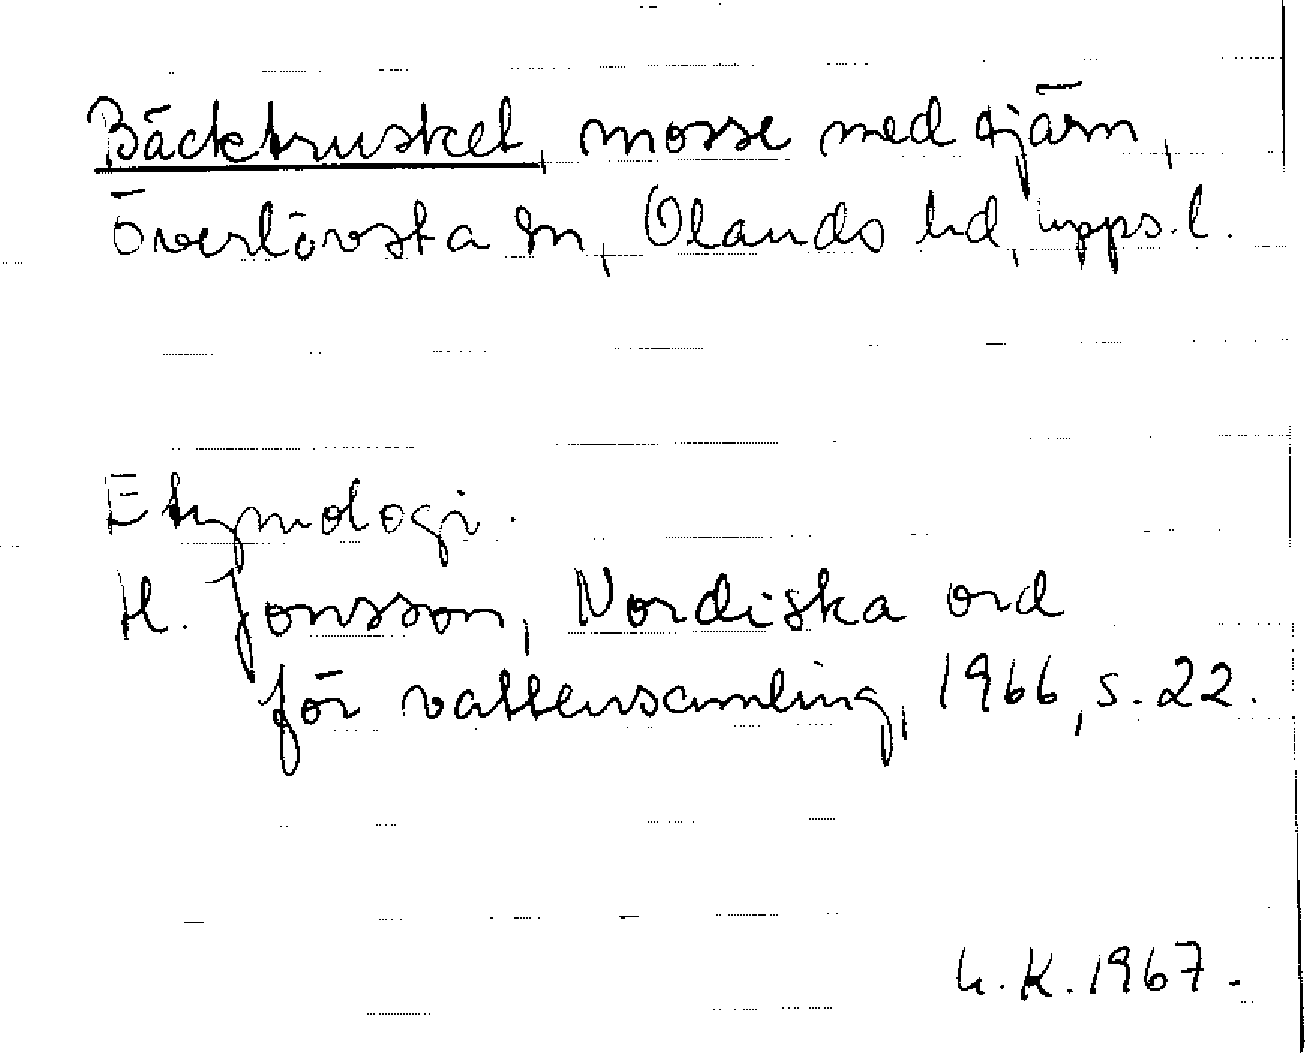 Bäcktrusket, mosse med tjärn,
Överlövsta sn, Olands hd, Upps. l.
Etymologi.
H. Jonsson, Nordiska ord
för vattensamling, 1966, s. 22.
L. K. 1967.